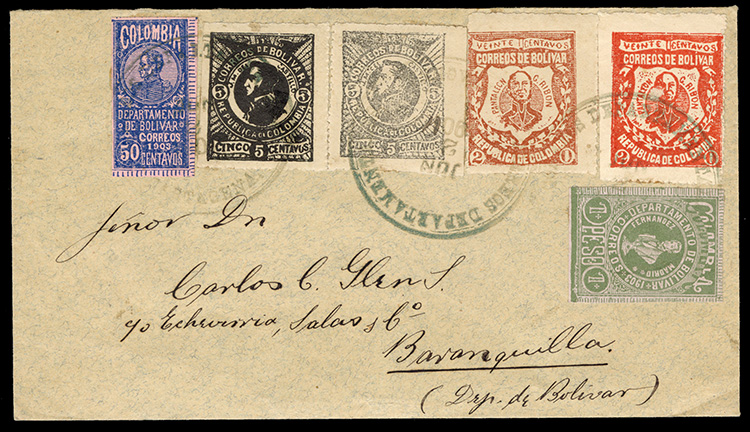 COLOMBIA
DEPARTAMENTO
DE BOLIVAR
CORREOS
1903
50 CENTAVOS
CORREOS DE BOLIVAR
5 5
REPUBLICA DE COLOMBIA
CINCO 5 CENTAVOS
CORREOS DE BOLIVAR
5 5
REPUBLICA DE COLOMBIA
CINCO 5 CENTAVOS
VEINTE CENTAVOS
CORREOS DE BOLIVAR
PANTALEON G. RIBON
REPUBLICA DE COLOMBIA
2 0
VEINTE CENTAVOS
CORREOS DE BOLIVAR
PANTALEON G. RIBON
REPUBLICA DE COLOMBIA
2 0
COLOMBIA
DEPARTAMENTO DE BOLIVAR
FERNANDEZ MADRID
CORREOS 1903
1 PESO 1
JUN
DEPARTAMEN
Señor Dn
Carlos C. Glen S.
c/o Echeverria, Salas & Co
Baranquilla.
(Dep. de Bolivar)